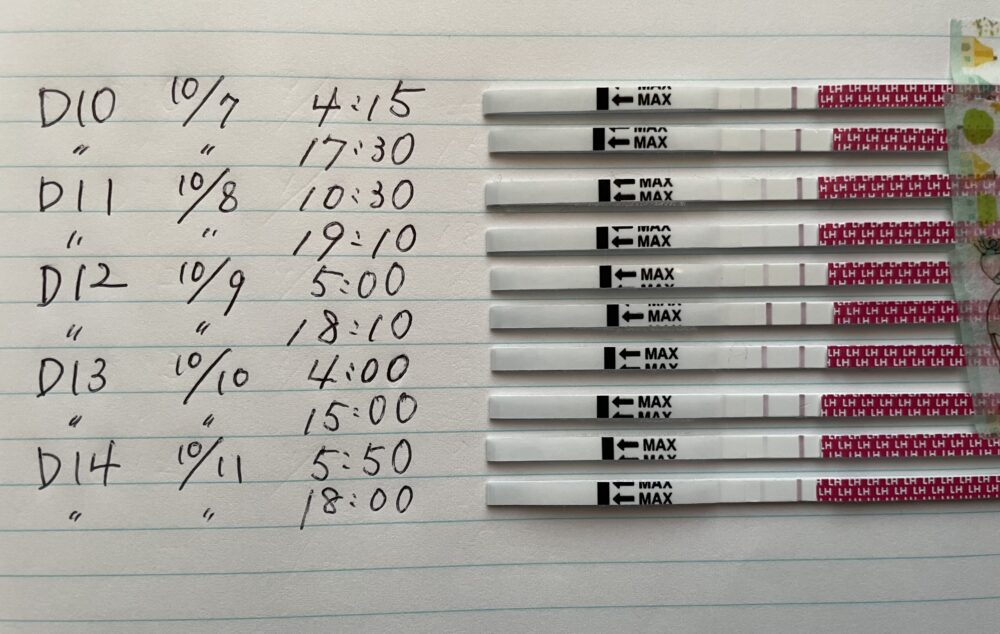 D10 10/7 4:15 MAX MAX LH LH LH LH LH LH LH
〃 〃 17:30 MAX MAX LH LH LH LH LH LH
D11 10/8 10:30 MAX MAX LH LH LH LH LH LH
〃 〃 19:10 MAX MAX LH LH LH LH LH LH
D12 10/9 5:00 MAX LH LH LH LH LH LH
〃 〃 18:10 MAX MAX LH LH LH LH LH LH
D13 10/10 4:00 MAX LH LH LH LH LH LH
〃 〃 15:00 MAX LH LH LH LH LH LH
D14 10/11 5:50 MAX LH LH LH LH LH LH
〃 〃 18:00 MAX MAX LH LH LH LH LH LH